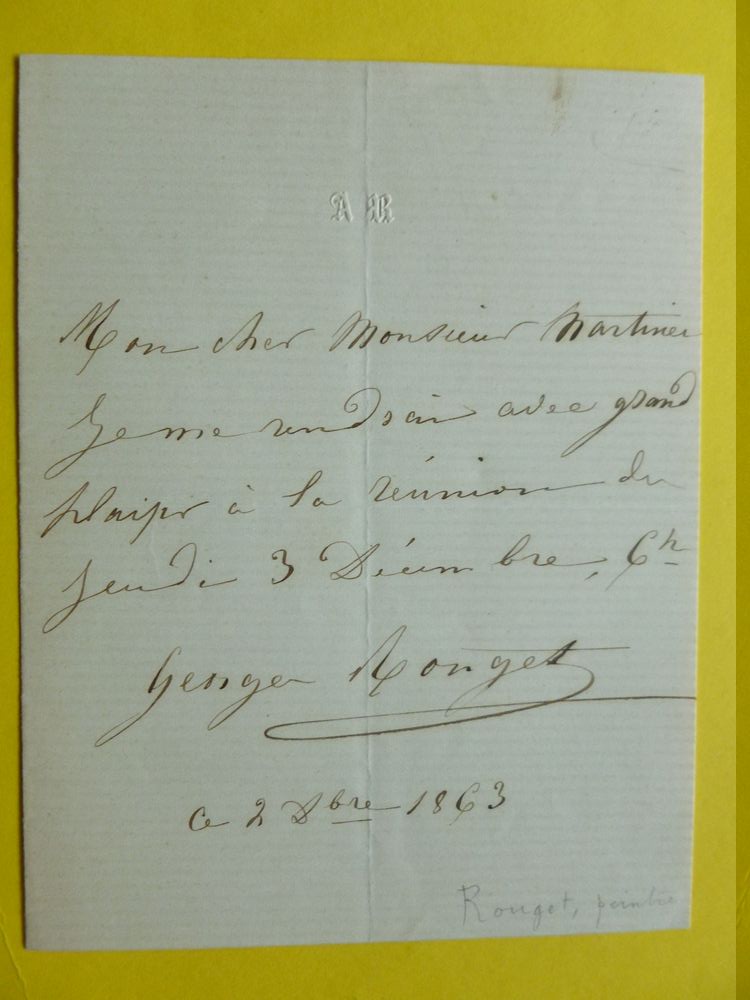 A R
Mon cher Monsieur Martinet
Je me rendrai avec grand
plaisir à la réunion du
jeudi 3 Décembre, 6h
Georges Rouget
ce 2 Xbre 1863
Rouget, peintre